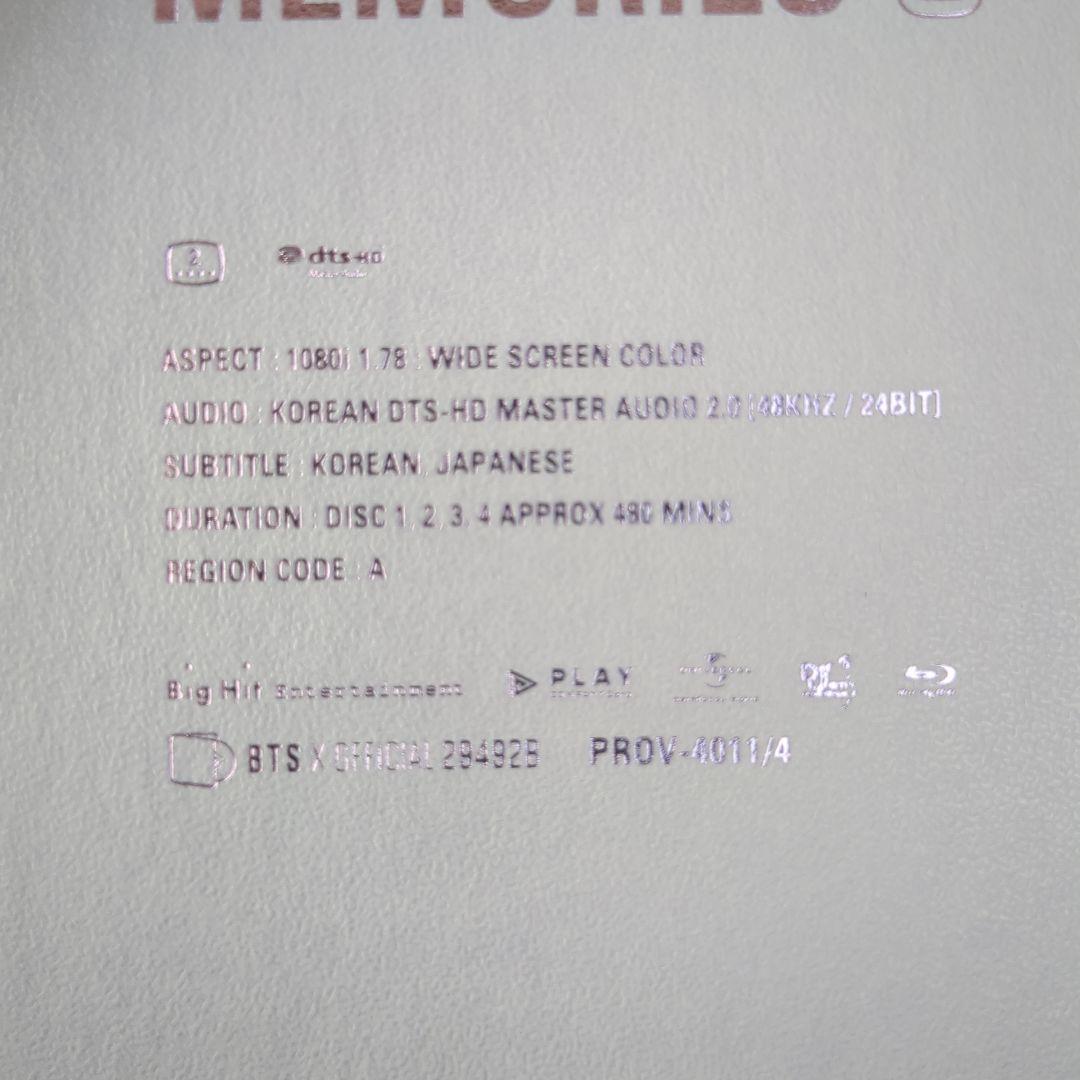 MEMORIES
2
dts-HD
Master Audio
ASPECT : 1080i 1.78 : WIDE SCREEN COLOR
AUDIO : KOREAN DTS-HD MASTER AUDIO 2.0 [48KHZ / 24BIT]
SUBTITLE : KOREAN, JAPANESE
DURATION : DISC 1, 2, 3, 4 APPROX 480 MINS
REGION CODE : A
Big Hit Entertainment PLAY UNIVERSAL
BTS X OFFICIAL PROV-4011/4